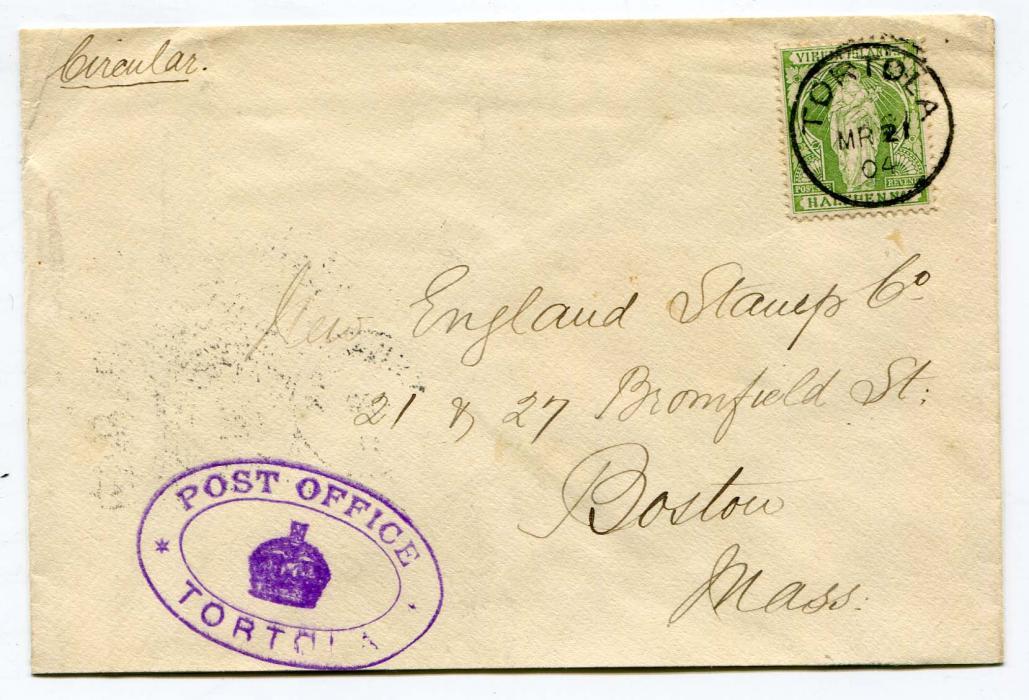 Circular.
VIRGIN ISLANDS
POSTAGE REVENUE
HALFPENNY
TORTOLA
MR 21
04
New England Stamp Co
21 & 27 Bromfield St:
Boston
Mass:
* POST OFFICE
TORTOLA